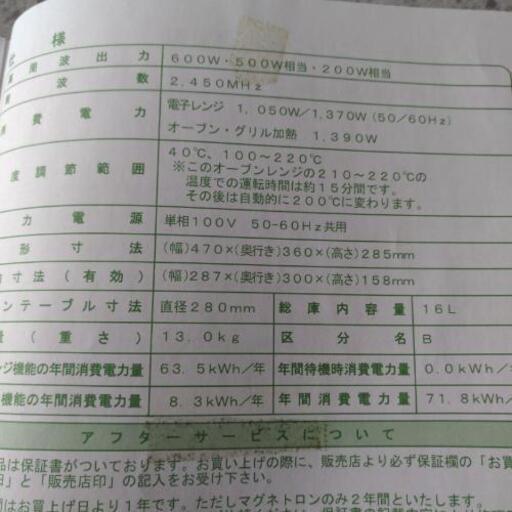 仕様
周波出力 600W・500W相当・200W相当
波数 2,450MHz
消費電力 電子レンジ 1,050W/1,370W(50/60Hz)
オーブン・グリル加熱 1,390W
度調節範囲 40℃、100～220℃
※このオーブンレンジの210～220℃の
温度での運転時間は約15分間です。
その後は自動的に200℃に変わります。
力電源 単相100V 50-60Hz共用
形寸法 (幅)470×(奥行き)360×(高さ)285mm
寸法(有効) (幅)287×(奥行き)300×(高さ)158mm
ンテーブル寸法 直径280mm 総庫内容量 16L
量(重さ) 13.0kg 区分名 B
ジ機能の年間消費電力量 63.5kWh/年 年間待機時消費電力量 0.0kWh/年
機能の年間消費電力量 8.3kWh/年 年間消費電力量 71.8kWh/年
アフターサービスについて
品は保証書がついております。お買い上げの際に、販売店より必ず保証欄の「お買
日」と「販売店印」の記入をお受け下さい。
間はお買上げ日より1年です。ただしマグネトロンのみ2年間といたします。